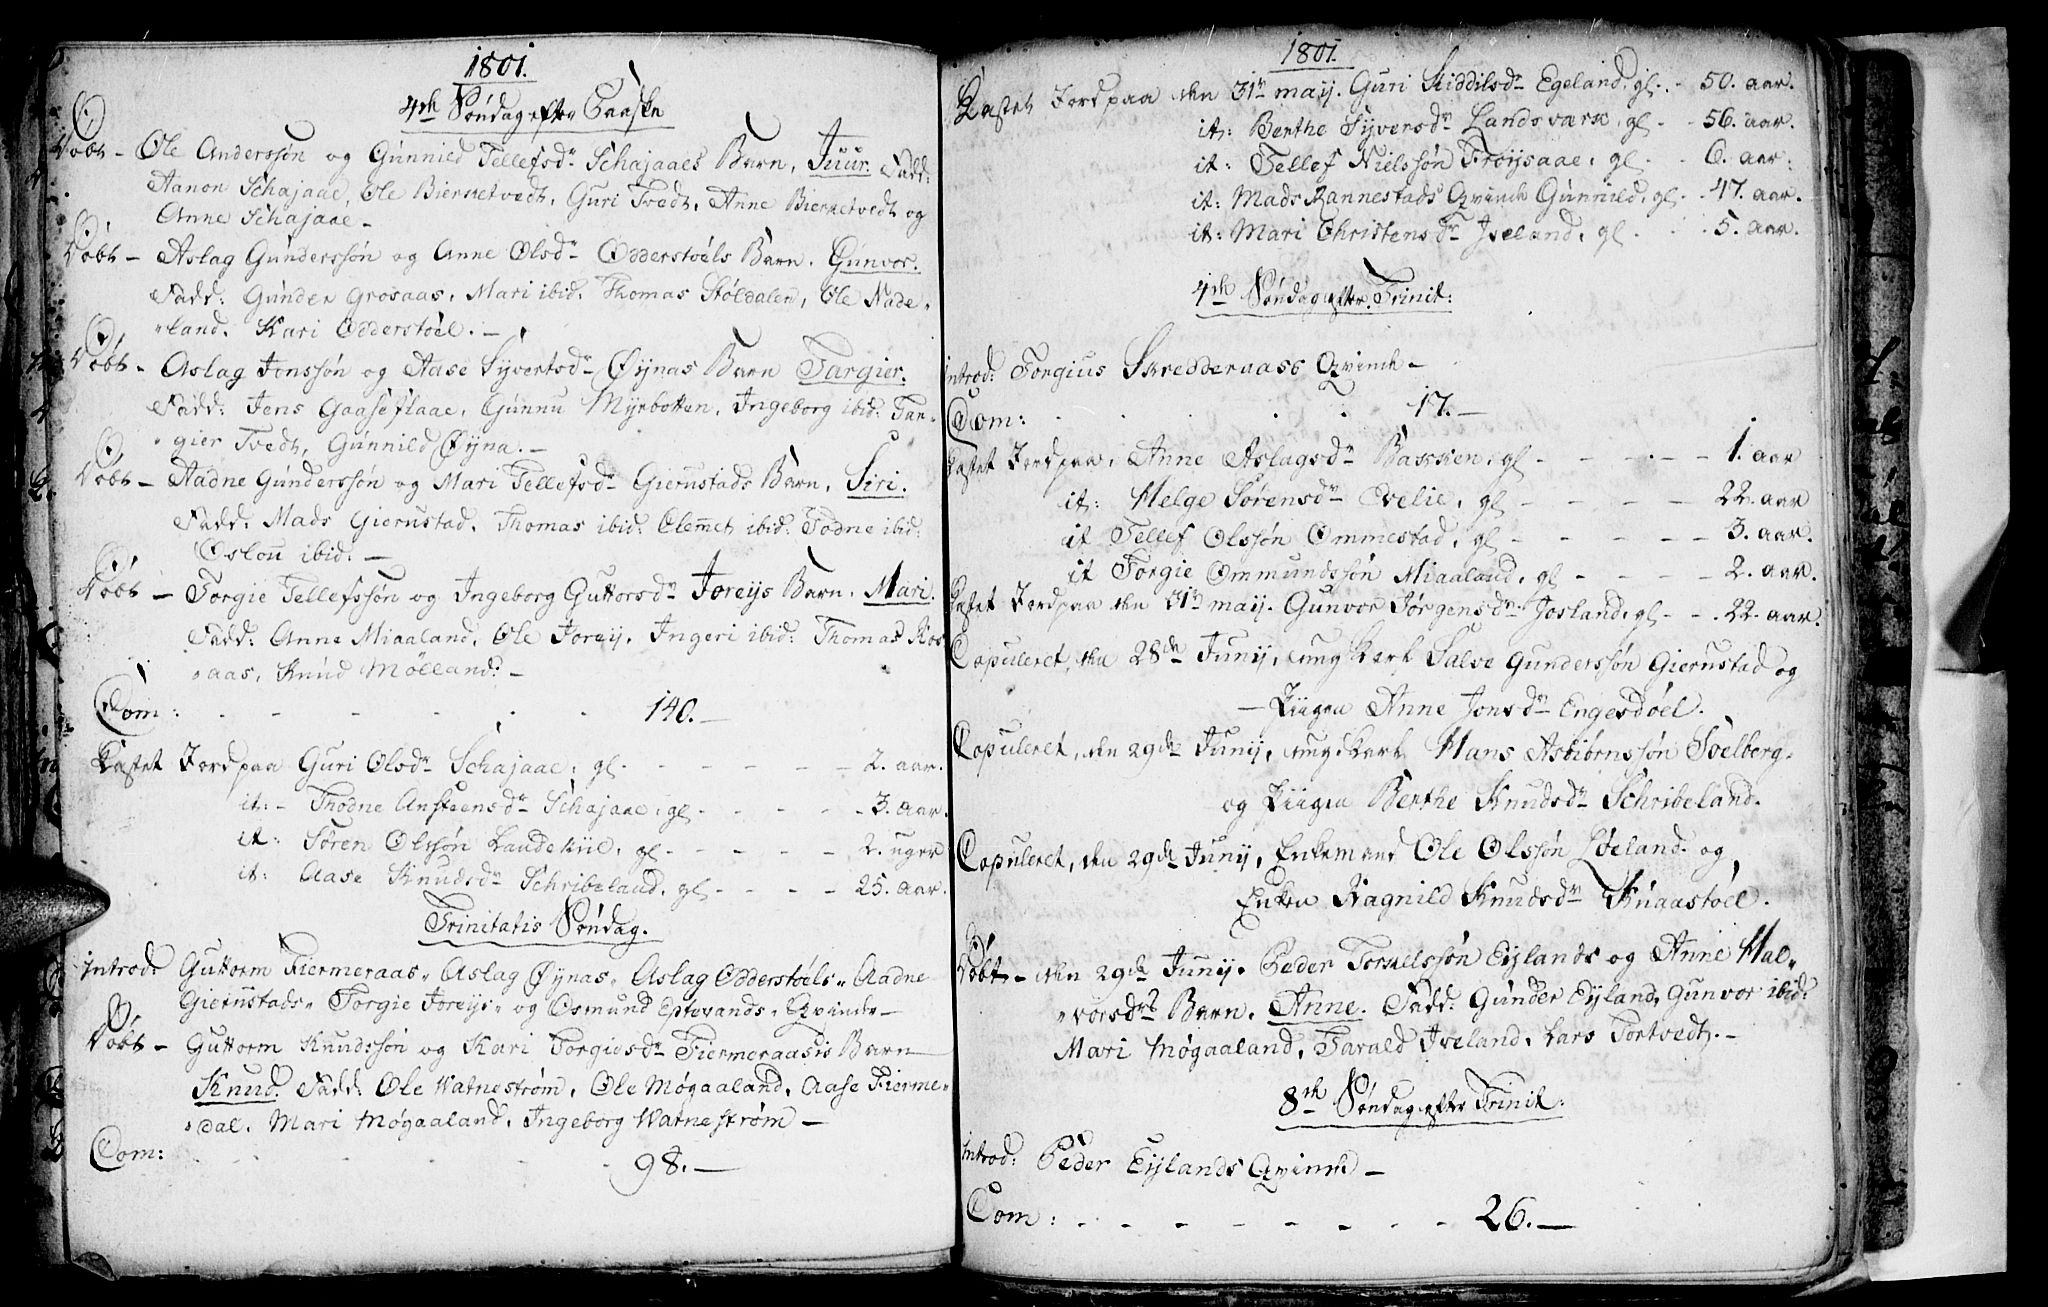 1801.
4de Søndag efter Paaske
Døbt – Ole Anderssøn og Gunnild Tellefsdr Schajaaes Barn, Juur. Fadd:
Aanon Schajaae, Ole Bierketvedt, Guri Tvedt, Anne Bierketvedt og
Anne Schajaae –
Døbt – Aslag Gunderssøn og Anne Olsdr Odderstøels Barn. Gunvor.
Fadd: Gunder Grosaas, Mari ibid. Thomas Støldalen, Ole Nade-
„land. Kari Odderstøel. –
Døbt – Aslag Jonssøn og Aase Syvertsdr Øynas Barn Targier.
Fadd: Jens Gaaseflaae, Gunnu Myrbotten, Ingeborg ibid: Tar-
„gier Tvedt, Gunnild Øyna. –
Døbt – Aadne Gunderssøn og Mari Tellefsdr Gierustads Barn, Siri.
Fadd: Mads Gierustad, Thomas ibid. Clemet ibid. Todne ibid:
Oslou ibid: –
Døbt – Torgie Tellefssøn og Ingeborg Guttorsdr Joreijs Barn. Mari.
Fadd: Anne Miaaland, Ole Joreij, Ingeri ibid: Thomas Ros
„aas, Knud Mølland. –
Com: 140. –
Kastet Jord paa Guri Olsdr Schajaae, gl. – 2. aar.
it: – Thodne Ansteensdr Schajaae, gl – 3. aar.
it: Søren Olssøn Laudekiie, gl – 2. uger
it: Aase Knudsdr Schribeland, gl – 25. aar.
Trinitatis Søndag.
Introd: Guttorm Fiermeraas, Aslag Øynas, Aslag Odderstøels, Aadne
Gierustads, Torgie Joreijs, og Osmund Eptevands, Qvinder –
Døbt – Guttorm Knudssøn og Kari Torgiesdr Fiermeraasis Barn
Knud. Fadd: Ole Watnestrøm, Ole Møgaaland, Aase Fierme-
„dal, Mari Møgaaland, Ingeborg Watnestrøm –
Com: 98. –
1801.
Kastet Jord paa den 31te maij. Guri Kiddilsdr Egeland, gl. – 50. aar.
it: Berthe Syversdr Landsværk, gl – 56. aar.
it: Tellef Nielssøn Frøijsaae, gl – 6. aar:
it: Mads Rannestads Qvinde Gunnild, gl – 47. aar.
it: Mari Christensdr Iveland, gl – 5. aar.
4de Søndag efter Trinit:
Introd: Torgius Skreddernaas Qvinde –
Com: 17. –
Kastet Jord paa, Anne Aslagsdr Bakken, gl – 1. aar
it: Helge Sørensdr Evelie, gl – 22. aar
it Tellef Olssøn Ommestad, gl – 3. aar.
it Torgie Ommundssøn Miaaland, gl – 2. aar.
Kastet Jord paa den 31te maij. Gunvor Jørgensdr Josland, gl – 22. aar.
Copuleret, den 28de Junij, ung Karl Salve Gunderssøn Gierustad og
– Piigen Anne Jonsdr Engesdøel.
Copuleret, den 29de Junij, ung Karl Hans Asbiørnssøn Solberg.
og Piigen Berthe Knudsdr Schribeland.
Copuleret, den 29de Junij, Enkemand Ole Olssøn Løeland og
Enken Ragnild Knudsdr Knaastøel.
Døbt – den 29de Junij. Peder Torkelssøn Eijlands og Anne Hal-
„vorsdrs Barn. Anne. Fadd: Gunder Eijland, Gunvor ibid:
Mari Møgaaland, Tarald Iveland, Lars Tortvedt. –
8de Søndag efter Trinit:
Introd: Peder Eijlands Qvinde –
Com: 26. –